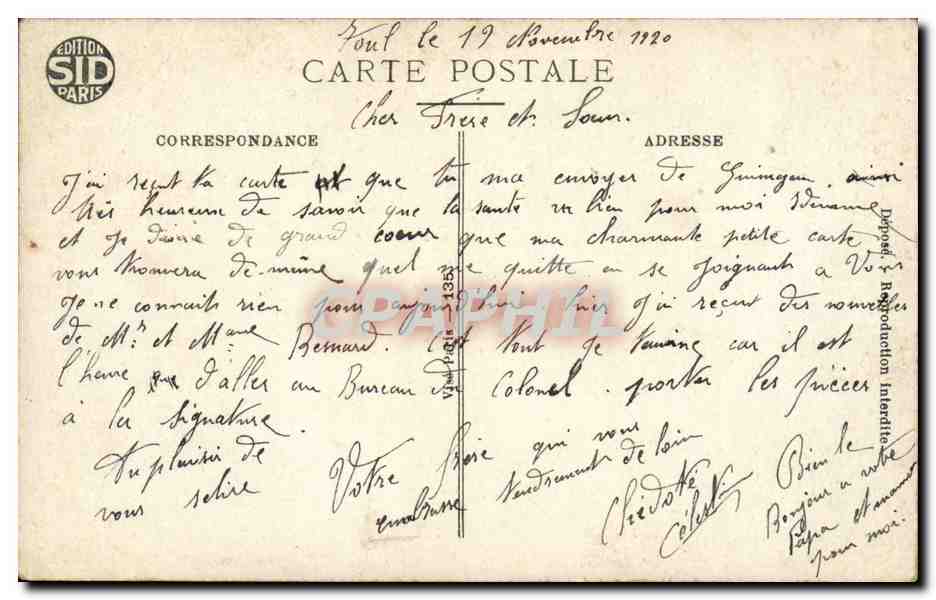 Toul le 19 Novembre 1920
EDITION
SID
PARIS
CARTE POSTALE
Cher Frère et Soeur.
CORRESPONDANCE
ADRESSE
J'ai reçut ta carte et que tu ma envoyer de
très heureux de savoir que la santé est bien pour moi
et Je désire de grand coeur que ma charmante petite carte
vous trouvera de même quel me quitte en se Joignant a Vous
Je ne connait rien pour aujourd'hui hier J'ai reçut des nouvelles
de Mr et Mame Besnard. C'est tout Je termine car il est
l'heure d'aller au Bureau du Colonel porter les pièces
à la signature.
Au plaisir de
vous relire
Votre frère qui vous
embrasse
tendrement de loin
Chédoté
Célestin
Bien le
Bonjour a votre
Papa et maman
pour moi.
Visa Paris 135
Déposé. Reproduction interdite
CPAPHIL